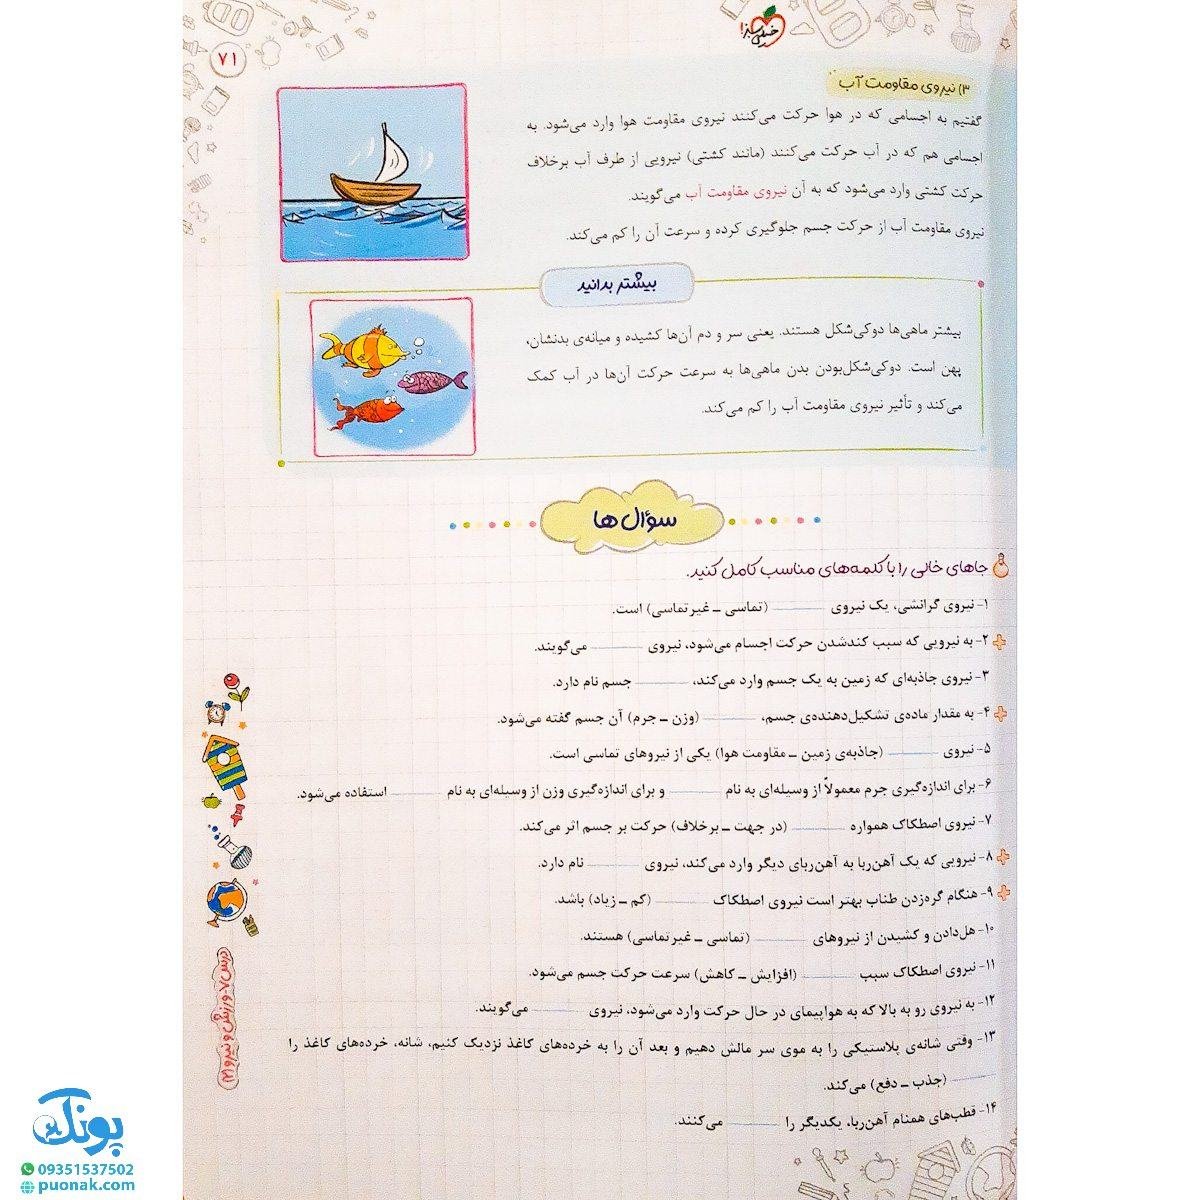 خیلی سبز!
۷۱
۳) نیروی مقاومت آب
گفتیم به اجسامی که در هوا حرکت می‌کنند نیروی مقاومت هوا وارد می‌شود. به
اجسامی هم که در آب حرکت می‌کنند (مانند کشتی) نیرویی از طرف آب برخلاف
حرکت کشتی وارد می‌شود که به آن نیروی مقاومت آب می‌گویند.
نیروی مقاومت آب از حرکت جسم جلوگیری کرده و سرعت آن را کم می‌کند.
بیشتر بدانید
بیشتر ماهی‌ها دوکی‌شکل هستند. یعنی سر و دم آن‌ها کشیده و میانه‌ی بدنشان،
پهن است. دوکی‌شکل‌بودن بدن ماهی‌ها به سرعت حرکت آن‌ها در آب کمک
می‌کند و تأثیر نیروی مقاومت آب را کم می‌کند.
سؤال ها
جاهای خالی را با کلمه‌های مناسب کامل کنید.
۱- نیروی گرانشی، یک نیروی ـــــــ (تماسی ـ غیرتماسی) است.
۲- به نیرویی که سبب کندشدن حرکت اجسام می‌شود، نیروی ـــــــ می‌گویند.
۳- نیروی جاذبه‌ای که زمین به یک جسم وارد می‌کند، ـــــــ جسم نام دارد.
۴- به مقدار ماده‌ی تشکیل‌دهنده‌ی جسم، ـــــــ (وزن ـ جرم) آن جسم گفته می‌شود.
۵- نیروی ـــــــ (جاذبه‌ی زمین ـ مقاومت هوا) یکی از نیروهای تماسی است.
۶- برای اندازه‌گیری جرم معمولاً از وسیله‌ای به نام ـــــــ و برای اندازه‌گیری وزن از وسیله‌ای به نام ـــــــ استفاده می‌شود.
۷- نیروی اصطکاک همواره ـــــــ (در جهت ـ برخلاف) حرکت بر جسم اثر می‌کند.
۸- نیرویی که یک آهن‌ربا به آهن‌ربای دیگر وارد می‌کند، نیروی ـــــــ نام دارد.
۹- هنگام گره‌زدن طناب بهتر است نیروی اصطکاک ـــــــ (کم ـ زیاد) باشد.
۱۰- هل‌دادن و کشیدن از نیروهای ـــــــ (تماسی ـ غیرتماسی) هستند.
۱۱- نیروی اصطکاک سبب ـــــــ (افزایش ـ کاهش) سرعت حرکت جسم می‌شود.
۱۲- به نیروی رو به بالا که به هواپیمای در حال حرکت وارد می‌شود، نیروی ـــــــ می‌گویند.
۱۳- وقتی شانه‌ی پلاستیکی را به موی سر مالش دهیم و بعد آن را به خرده‌های کاغذ نزدیک کنیم، شانه، خرده‌های کاغذ را
ـــــــ (جذب ـ دفع) می‌کند.
۱۴- قطب‌های همنام آهن‌ربا، یکدیگر را ـــــــ می‌کنند.
درس ۷- ورزش و نیرو (۲)
پونک
09351537502
puonak.com